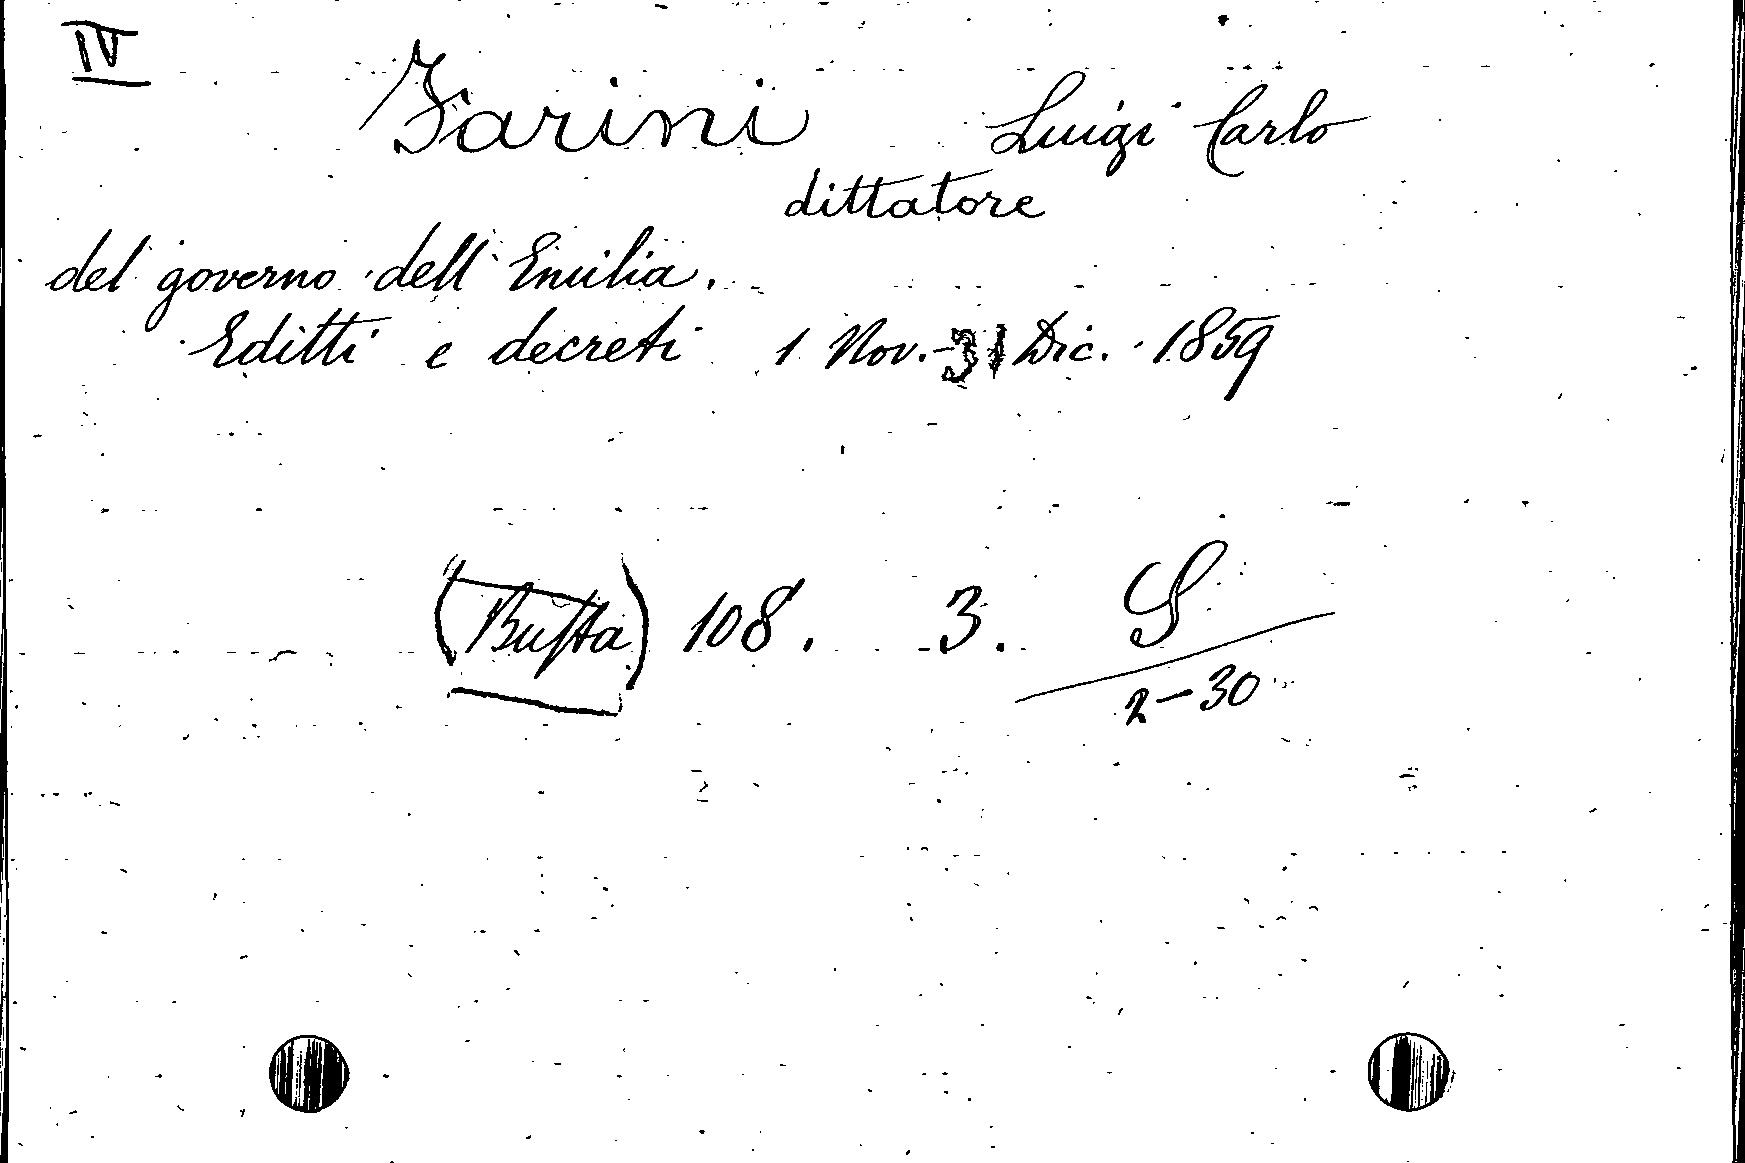 IV
Farini Luigi Carlo
dittatore
del governo dell'Emilia.
Editti e decreti 1 Nov.-31 Dic. 1859
(Busta) 108. 3. S
2-30